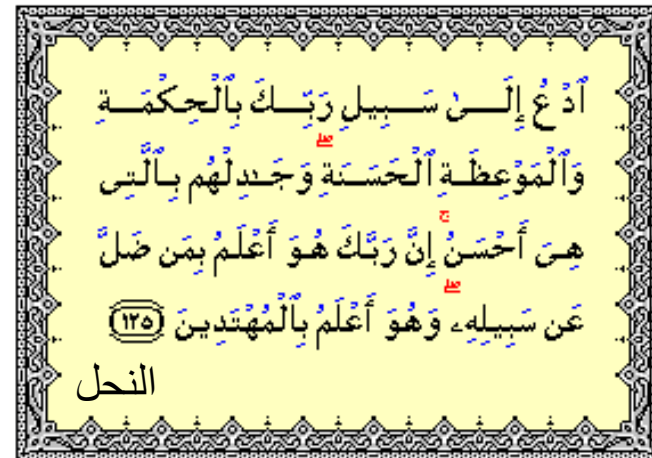 ٱدْعُ إِلَـــىٰ سَـــبِيلِ رَبِّـــكَ بِٱلْحِكْمَـــةِ
وَٱلْمَوْعِظَـةِ ٱلْحَسَـنَةِ ۖ وَجَـٰدِلْهُم بِـٱلَّتِى
هِىَ أَحْسَنُ ۚ إِنَّ رَبَّكَ هُـوَ أَعْلَمُ بِمَن ضَلَّ
عَن سَبِيلِهِۦ ۖ وَهُوَ أَعْلَمُ بِٱلْمُهْتَدِينَ ﴿١٢٥﴾
النحل